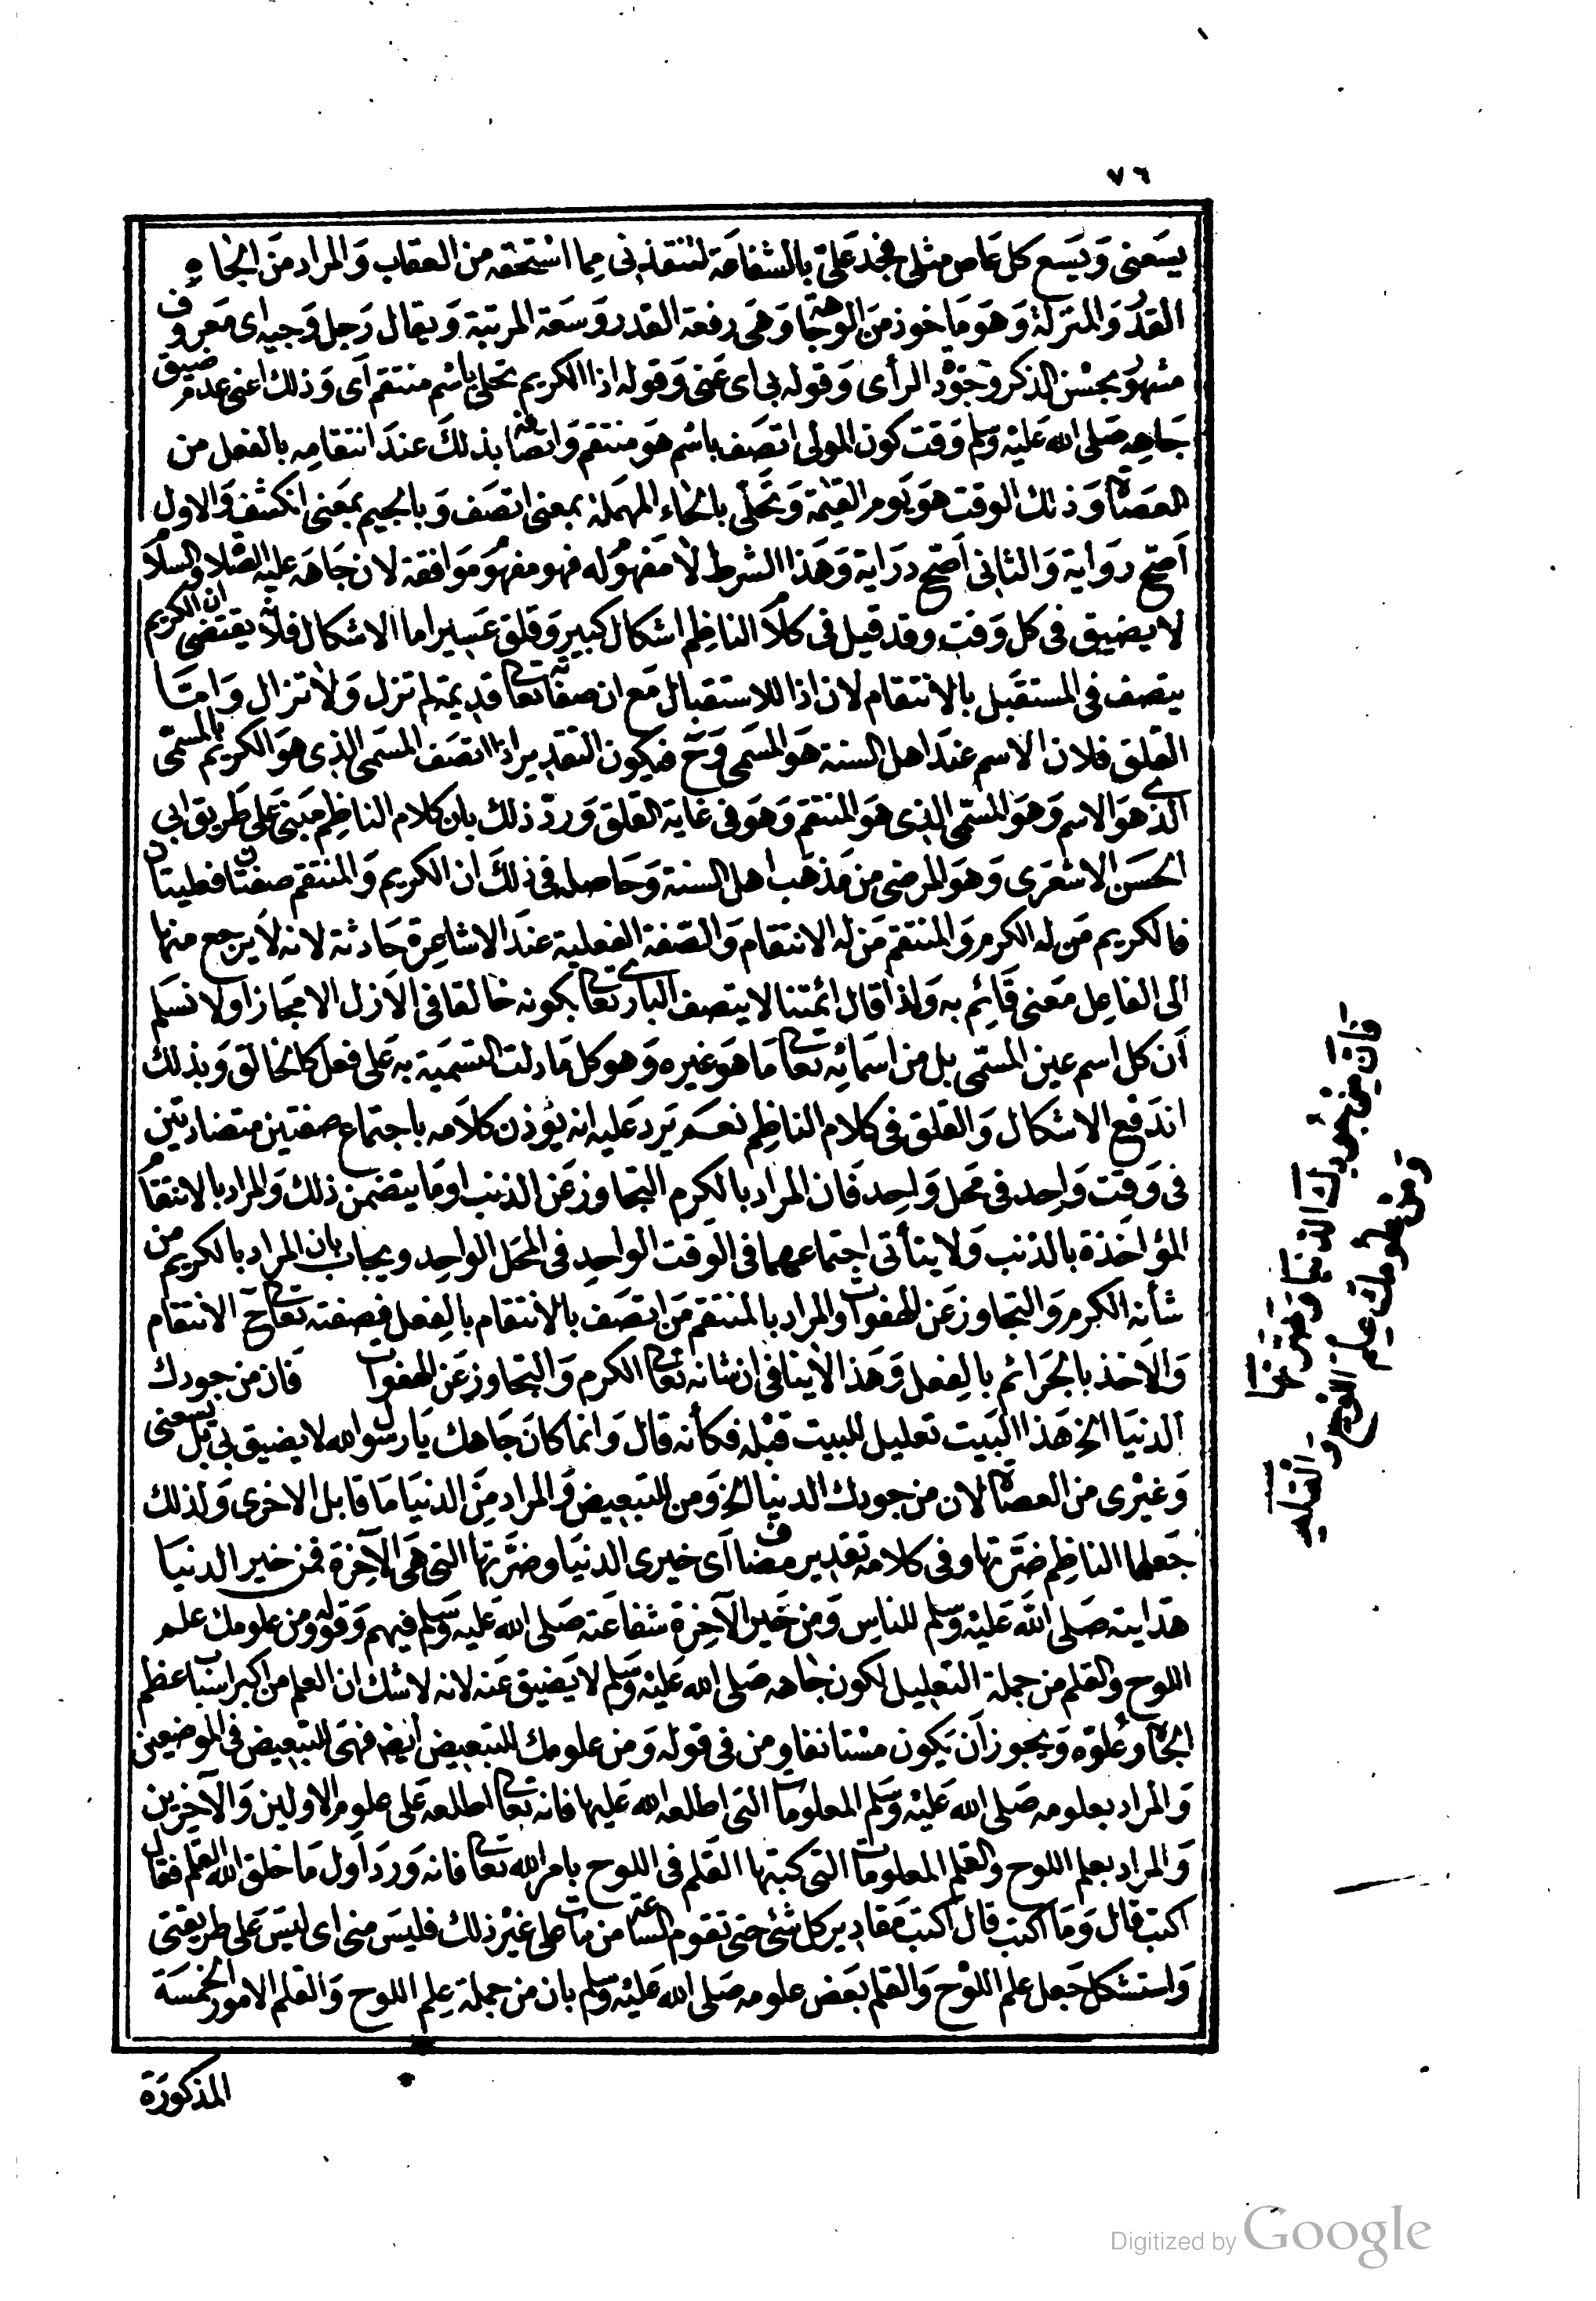 ٧٦
يسعنى ويسع كل عاص مثلى فجد على بالشفاعة لتنقذنى مما استحقه من العقاب والمراد من الجاه
القدر والمنزلة وهو ماخوذ من الوجاهة وهى رفعة القدر وسعة المرتبة ويقال رجل وجيه اى معروف
مشهور بحسن الذكر وجودة الرأى وقوله بى اى عنى وقوله اذا الكريم تحلى باسم منتقم اى وذلك اعنى عدم ضيق
جاهه صلى الله عليه وسلم وقت كون المولى اتصف باسم هو منتقم واتصافه بذلك عند انتقامه بالفعل من
العصاة وذلك الوقت هو يوم القيمة وتحلى بالحاء المهملة بمعنى اتصف وبالجيم بمعنى انكشف والاول
اصح رواية والثانى اصح دراية وهذا الشرط لا مفهوم له فهو مفهوم موافقة لان جاهه عليه الصلاة والسلام
لا يضيق فى كل وقت وقد قيل فى كلام الناظم اشكال كبير وقلق عسير اما الاشكال فلانه يقتضى ان الكريم
يتصف فى المستقبل بالانتقام لان اذا للاستقبال مع ان صفاته تعالى قديمة لم تزل ولا تزال واما
القلق فلان الاسم عند اهل السنة هو المسمى وح فيكون التقدير اذا اتصف المسمى الذى هو الكريم بالمسمى
الذى هو الاسم وهو المسمى الذى هو المنتقم وهو فى غاية القلق ورد ذلك بان كلام الناظم مبنى على طريق ابى
الحسن الاشعرى وهو المرضى من مذهب اهل السنة وحاصله فى ذلك ان الكريم والمنتقم صفتان فعليتان
فالكريم من له الكرم والمنتقم من له الانتقام والصفة الفعلية عند الاشاعرة حادثة لانه لا يرجع منها
الى الفاعل معنى قائم به ولذا قال ائمتنا لا يتصف البارى تعالى بكونه خالقا فى الازل الا مجازا ولا نسلم
ان كل اسم عين المسمى بل من اسمائه تعالى ما هو غيره وهو كل ما دلت التسمية به على فعل كالخالق وبذلك
اندفع الاشكال والقلق فى كلام الناظم نعم يرد عليه انه يؤذن كلامه باجتماع صفتين متضادتين
فى وقت واحد فى محل واحد فان المراد بالكرم التجاوز عن الذنب او ما يتضمن ذلك والمراد بالانتقام
المؤاخذة بالذنب ولا يتأتى اجتماعهما فى الوقت الواحد فى المحل الواحد ويجاب بان المراد بالكريم من
شأنه الكرم والتجاوز عن الهفوات والمراد بالمنتقم من اتصف بالانتقام بالفعل فصفته تعالى ح الانتقام
والاخذ بالجرائم بالفعل وهذا لا ينافى ان شانه تعالى الكرم والتجاوز عن الهفوات فان من جودك
الدنيا الخ هذا البيت تعليل للبيت قبله فكأنه قال وانما كان جاهك يا رسول الله لا يضيق بى بل يسعنى
وغيرى من العصاة لان من جودك الدنيا الخ ومن للتبعيض والمراد من الدنيا ما قابل الاخرى ولذلك
جعلها الناظم ضرتها وفى كلامه تقدير مضاف اى خيرى الدنيا وضرتها التى هى الآخرة فمن خير الدنيا
هدايته صلى الله عليه وسلم للناس ومن خير الآخرة شفاعته صلى الله عليه وسلم فيهم وقوله ومن علومك علم
اللوح والقلم من جملة التعليل لكون جاهه صلى الله عليه وسلم لا يضيق عنه لانه لا شك ان العلم من اكبر اسباب عظم
الجاه وعلوه ويجوز ان يكون مستانفا ومن فى قوله ومن علومك للتبعيض ايضا فهى للتبعيض فى الموضعين
والمراد بعلومه صلى الله عليه وسلم المعلومات التى اطلعه الله عليها فانه تعالى اطلعه على علوم الاولين والآخرين
والمراد بعلم اللوح والقلم المعلومات التى كتبها القلم فى اللوح بامر الله تعالى فانه ورد اول ما خلق الله القلم فقال
اكتب قال وما اكتب قال اكتب مقادير كل شئ حتى تقوم الساعة من مات على غير ذلك فليس منى اى ليس على طريقتى
واستشكل جعل علم اللوح والقلم بعض علومه صلى الله عليه وسلم بان من جملة علم اللوح والقلم الامور الخمسة
المذكورة
فان من جودك الدنيا وضرتها
ومن علومك علم اللوح والقلم
Digitized by Google